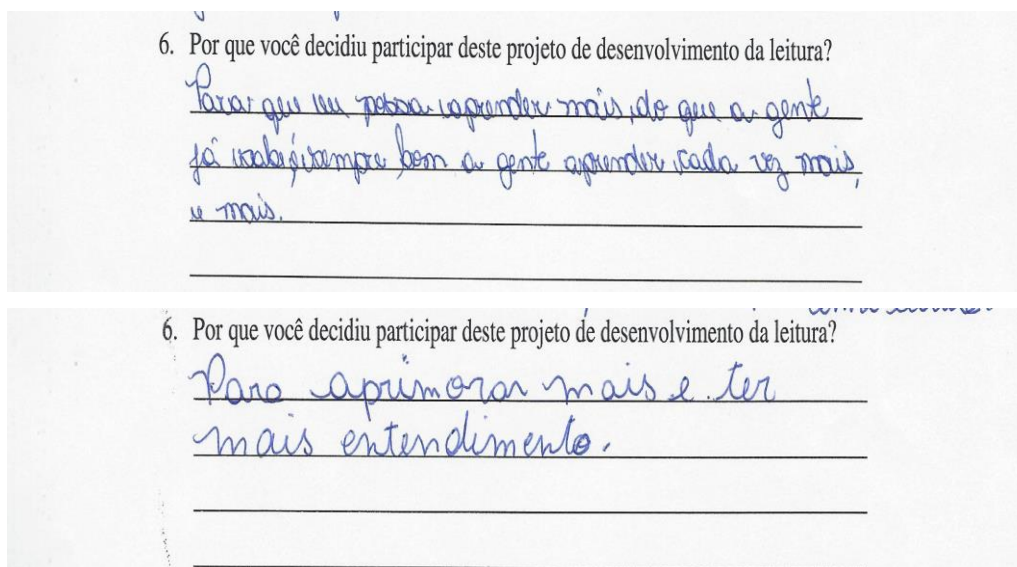 6. Por que você decidiu participar deste projeto de desenvolvimento da leitura?
Para que eu possa aprender mais, do que a gente
já sabe, é sempre bom a gente aprender cada vez mais,
e mais.
6. Por que você decidiu participar deste projeto de desenvolvimento da leitura?
Para aprimorar mais e ter
mais entendimento.